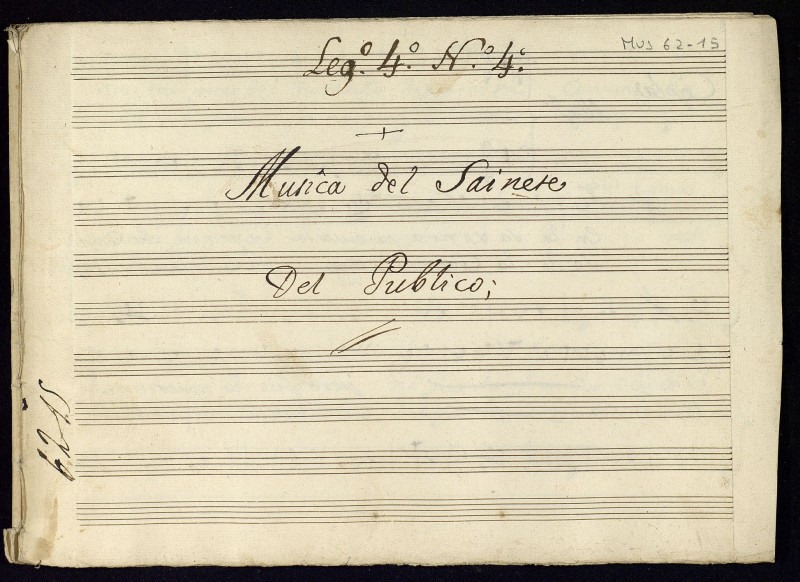 Mus 62-15
Leg.º 4.º N.º 4.º
Musica del Sainete
Del Publico;
62-15